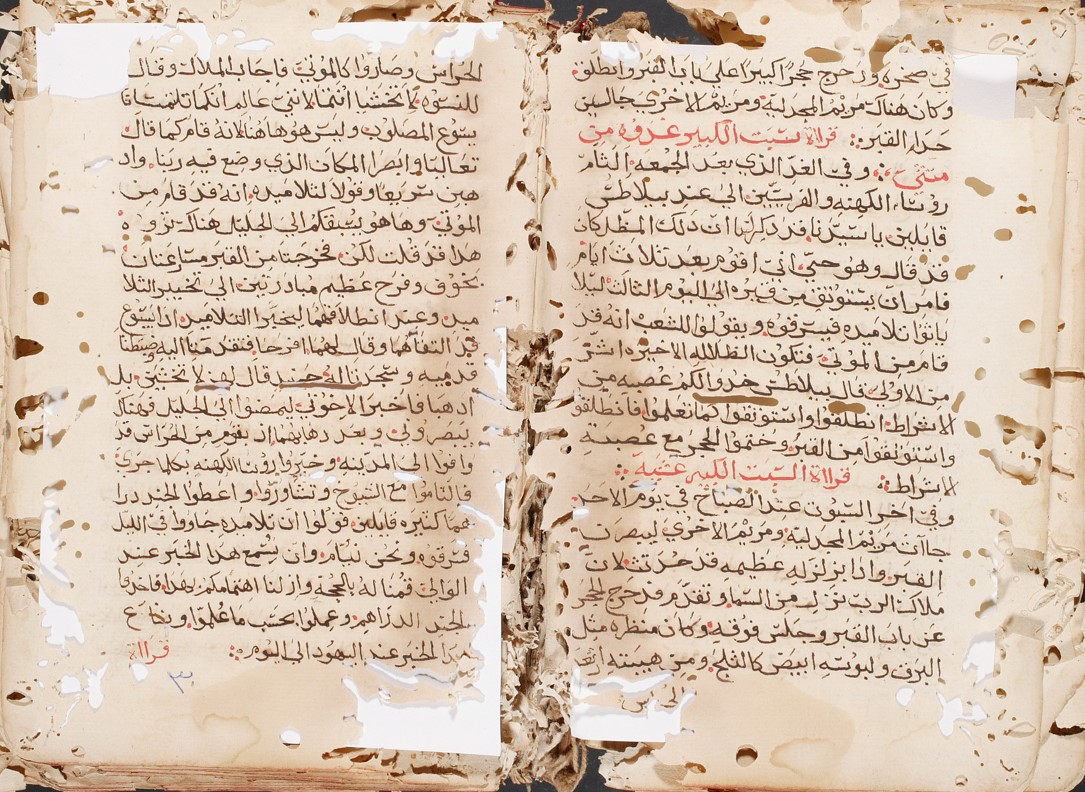 في صخره ودحرج حجرًا كبيرًا علي باب القبر وانطلق
وكان هناك مريم المجدليه ومريم الاخري جالسين
حداء القبر: قراة السبت الكبير غدوه من
متي: وفي الغد الذي بعد الجمعه التام
روسا الكهنه والفريسين الي عند بيلاطس
قايلين ياسيدنا قد ذكرنا ان ذلك المظل كان
قد قال وهو حي اني اقوم بعد تلات ايام
فامر ان يستوتق من قبره الي اليوم التالت ليلا
ياتوا تلاميده فيسرقوه ويقولوا للشعب انه قد
قام من الموتي فتكون الظلاله الاخيره اشر
من الاولي قال بيلاطس خدوا لكم عصبه من
الاشراط انطلقوا واستوتقوا كما تعلموا فانطلقوا
واستوتقوا من القبر وختموا الحجر مع عصبة
الاشراط: قراة السبت الكبير عشية:
وفي اخر السبوت عند الصباح في يوم الاحد
جاات مريم المجدليه ومريم الاخري ليبصرن
القبر وادا بزلزله عظيمه قد حدتت لان
ملاك الرب نزل من السما وتقدم ودحرج الحجر
عن باب القبر وجلس فوقه وكان منظره مثل
البرق ولبوسه ابيض كالثلج ومن هيبته ارتعد
الحراس وصاروا كالموتي فاجاب الملاك وقال
للنسوه لا تخشيا انتما لانني عالم انكما تلتمسا
يسوع المصلوب وليس هو هاهنا لانه قام كما قال
تعاليا وابصرا المكان الذي وضع فيه ربنا واد
هبن سريعا وقولا لتلاميده انه قد قام من
الموتي وها هو يسبقكم الي الجليل هناك ترو ه
هدا قد قلت لكن فخرجتا من القبر مسارعتان
بخوف وفرح عظيم مبادرتين الي تخبير التلا
ميد وعند انطلاقهما ليخبرا التلاميد ادا يسوع
قد التقاهما وقال لهما افرحا فتقدمتا اليه وضبطتا
قدميه وسجدتا له حينيد قال لهن لا تخشين بل
ادهبا فاخبرا الاخوتي ليمضوا الي الجليل فهناك
يبصروني وبعد دهابهما اد بقوم من الحراس قد
وافوا الي المدينه وخبروا روسا الكهنه بكلما جري
فالتاموا مع الشيوخ وتشاوروا واعطوا الجند درا
هما كتيره قايلين قولوا ان تلاميده جاووا في الليل
فسرقوه ونحن نيام وان يسمع هدا الخبر عند
الوالي قمنا له بالحجه وازلنا اهتمامكم بهدا فاخدوا
الجند الدراهم وعملوا بحسب ما علموا وشاع
هدا الخبر عند اليهود الي اليوم: قراة